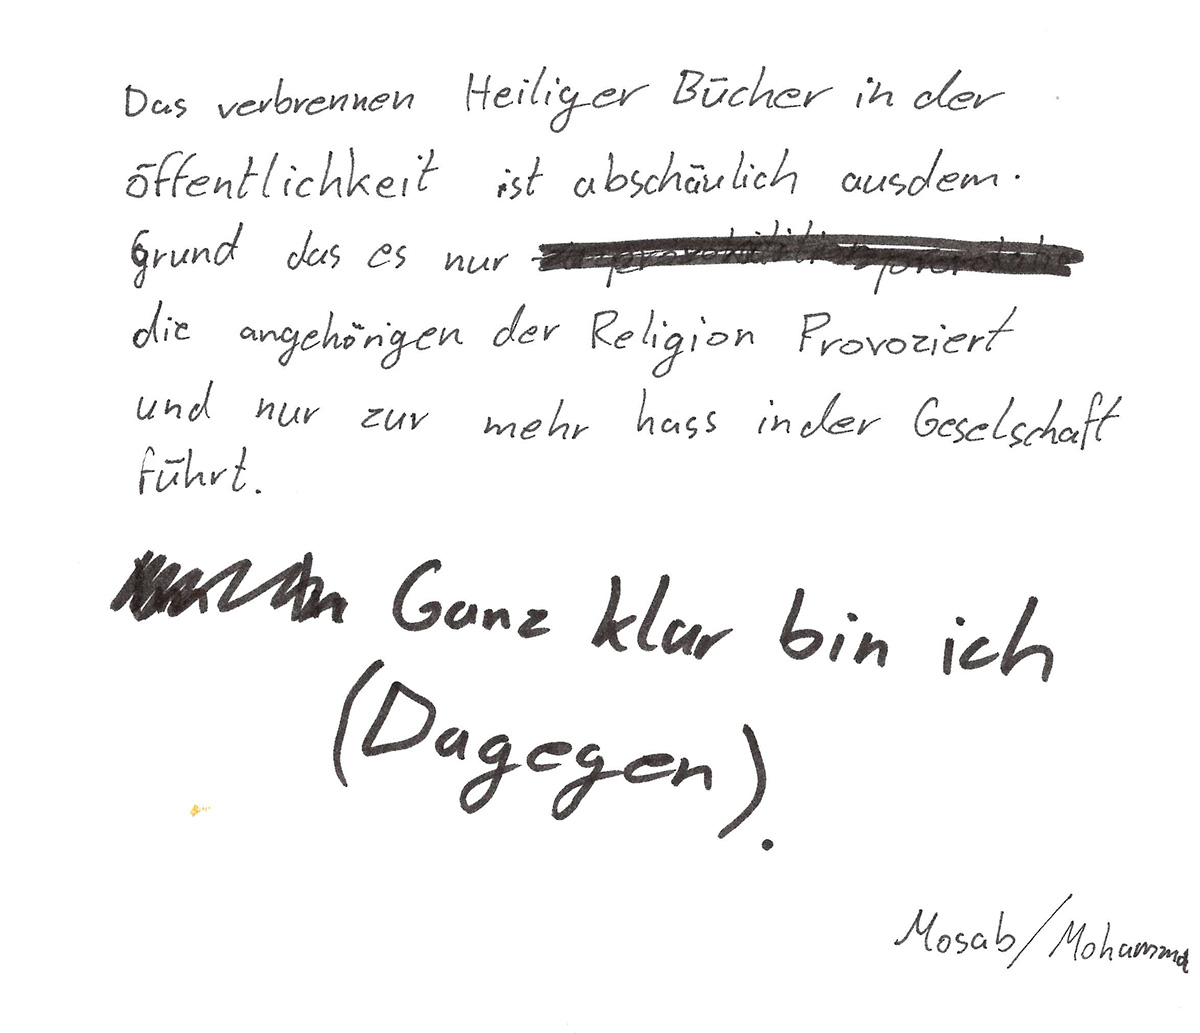 Das verbrennen Heiliger Bücher in der
öffentlichkeit ist abschäulich ausdem.
Grund das es nur
die angehörigen der Religion Provoziert
und nur zur mehr hass inder Geselschaft
führt.
Ganz klar bin ich
(Dagegen).
Mosab/Mohammed